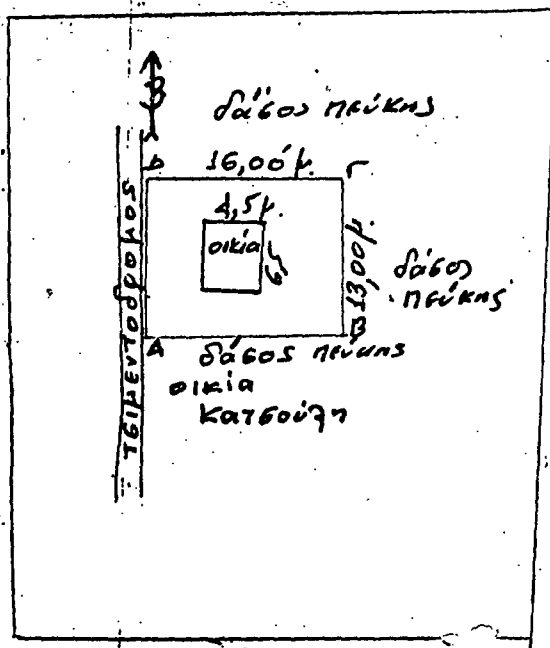 Β
δάσος πεύκης
16,00 μ.
Δ
Γ
4,5 μ.
οικία
13,00 μ.
δάσος
πεύκης
τσιμεντοδρομος
Α
Β
δάσος πεύκης
οικία
Κατσούλη